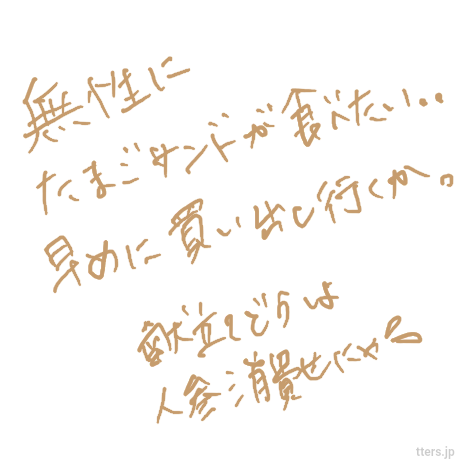 無性に
たまごサンドが食べたい..
早めに買い出し行くか。
献立てどうしよ
人参消費せにゃ
tters.jp